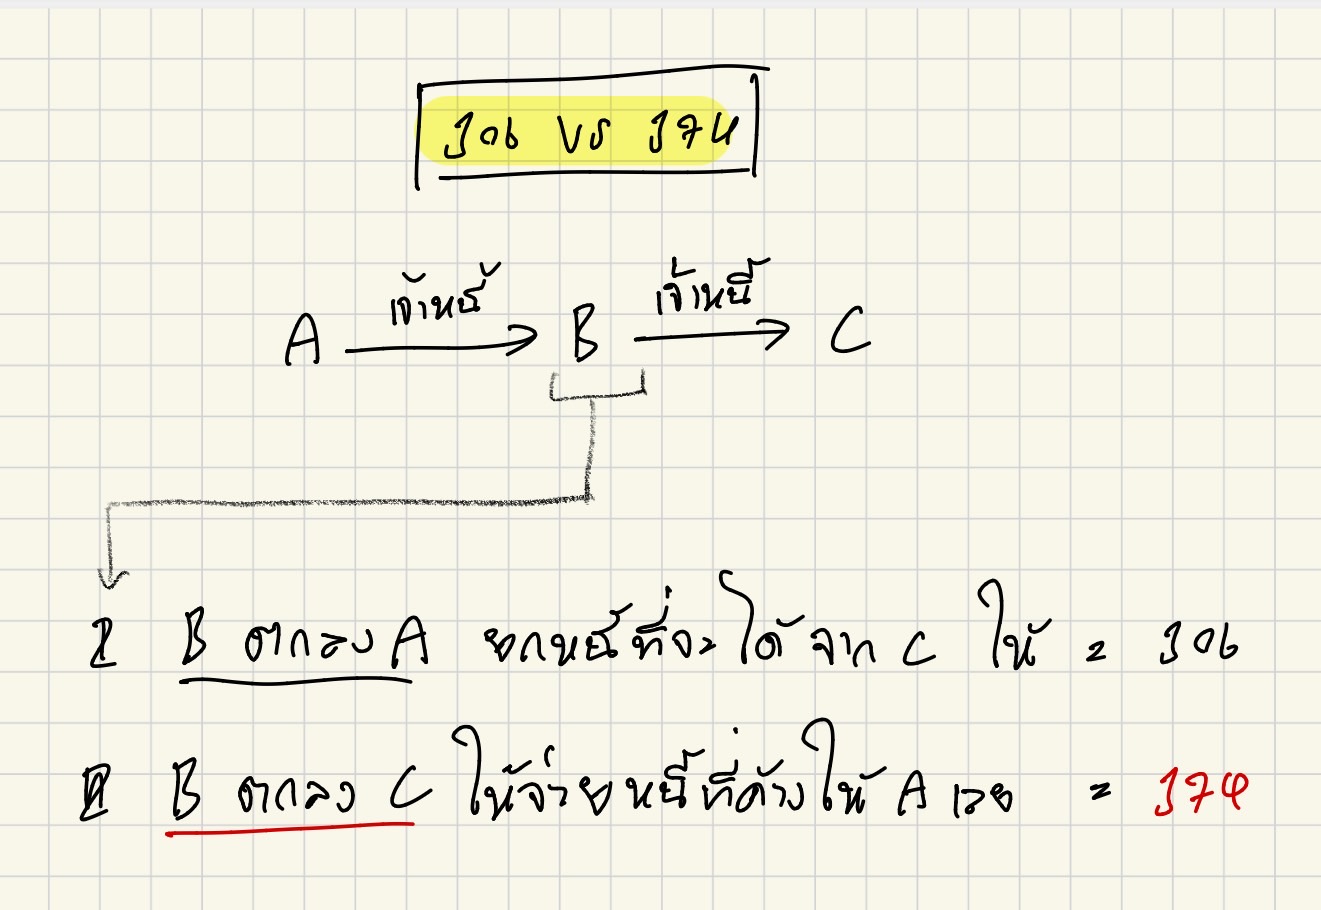 306 VS 374
A เจ้าหนี้ B เจ้าหนี้ C
1 B ตกลง A ยกหนี้ที่จะได้จาก C ให้ = 306
2 B ตกลง C ให้จ่ายหนี้ที่ค้างให้ A เลย = 374